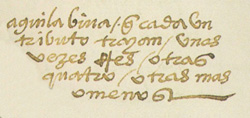 aguila biua / q̃ cada vn
tributo trayan / vnas
vezes tres / otras
quatro / otras mas
o menos